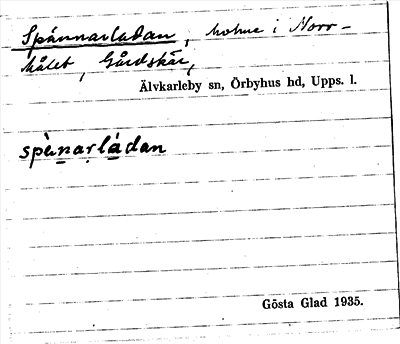 Spännarladan, holme i Norr-
målet, Gårdskär,
Älvkarleby sn, Örbyhus hd, Upps. l.
spànarládan
Gösta Glad 1935.